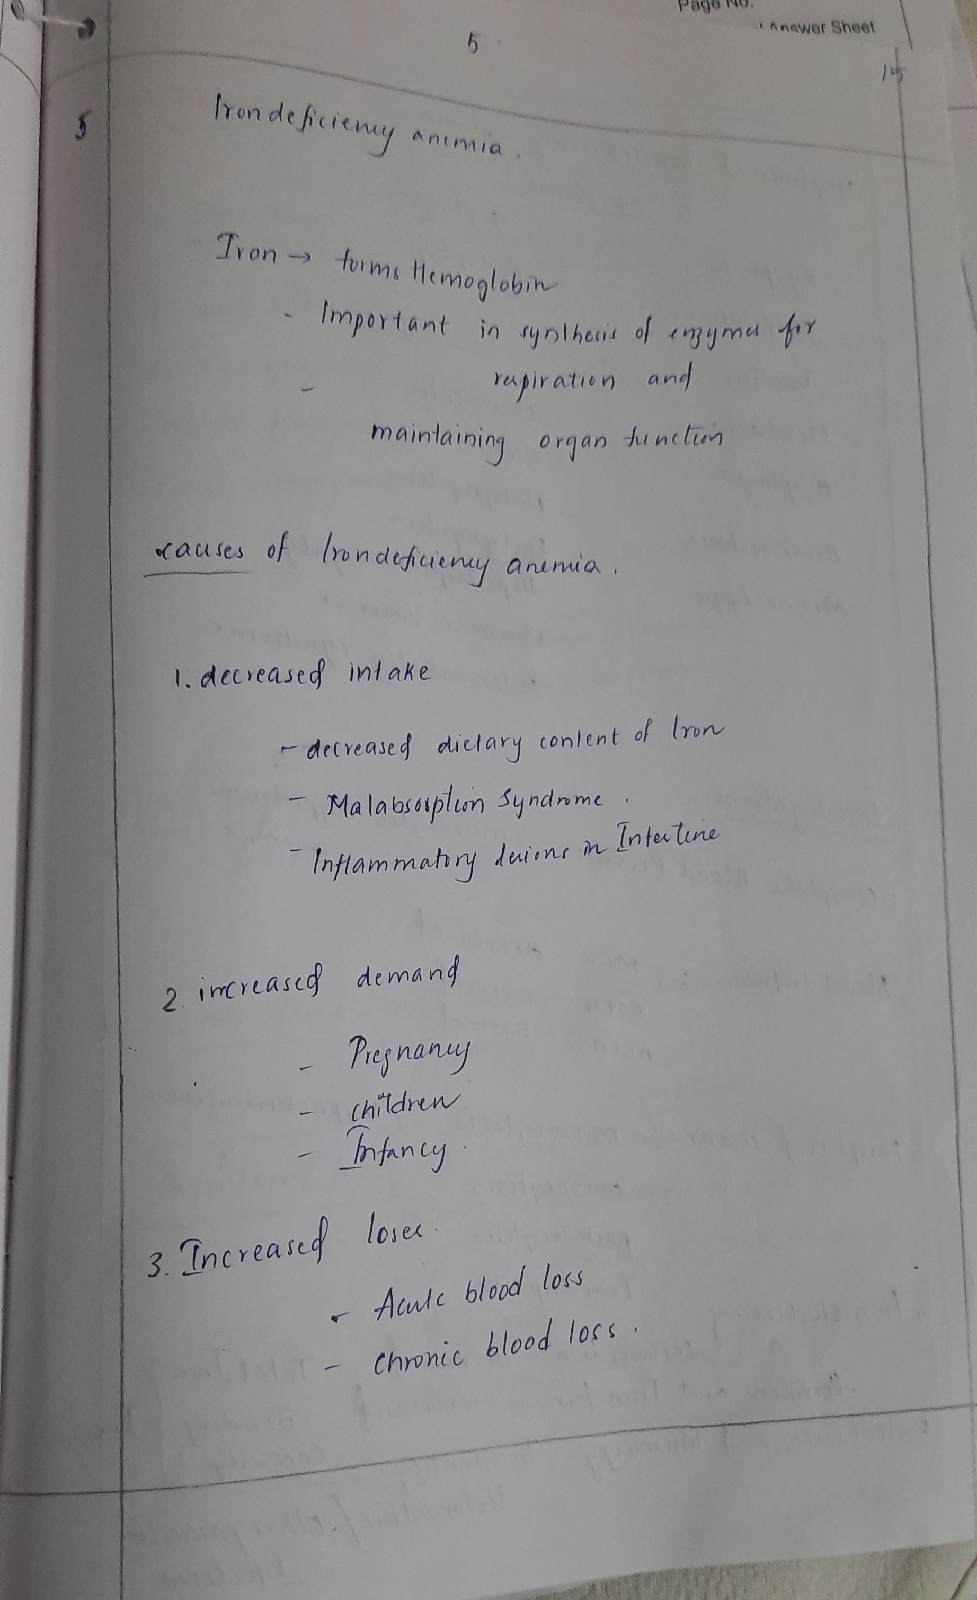 Page No.
Answer Sheet
5
15
5
Iron deficiency anemia.
Iron → forms Hemoglobin
- Important in synthesis of enzymes for
- respiration and
maintaining organ function
causes of Iron deficiency anemia.
1. decreased intake
- decreased dietary content of Iron
- Malabsorption Syndrome.
- Inflammatory lesions in Intestine
2. increased demand
- Pregnancy
- children
- Infancy.
3. Increased loses.
- Acute blood loss
- chronic blood loss.